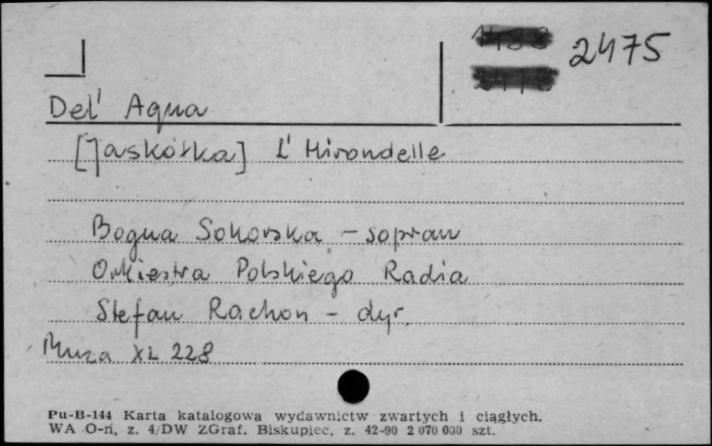 2475
Del' Aqua
[Jaskółka] L' Hirondelle
Bogna Sokorska - sopran
Orkiestra Polskiego Radia
Stefan Rachoń - dyr.
Muza XL 228
Pu-B-144 Karta katalogowa wydawnictw zwartych i ciągłych.
WA O-ń, z. 4/DW ZGraf. Biskupiec, z. 42-90 2 070 000 szt.